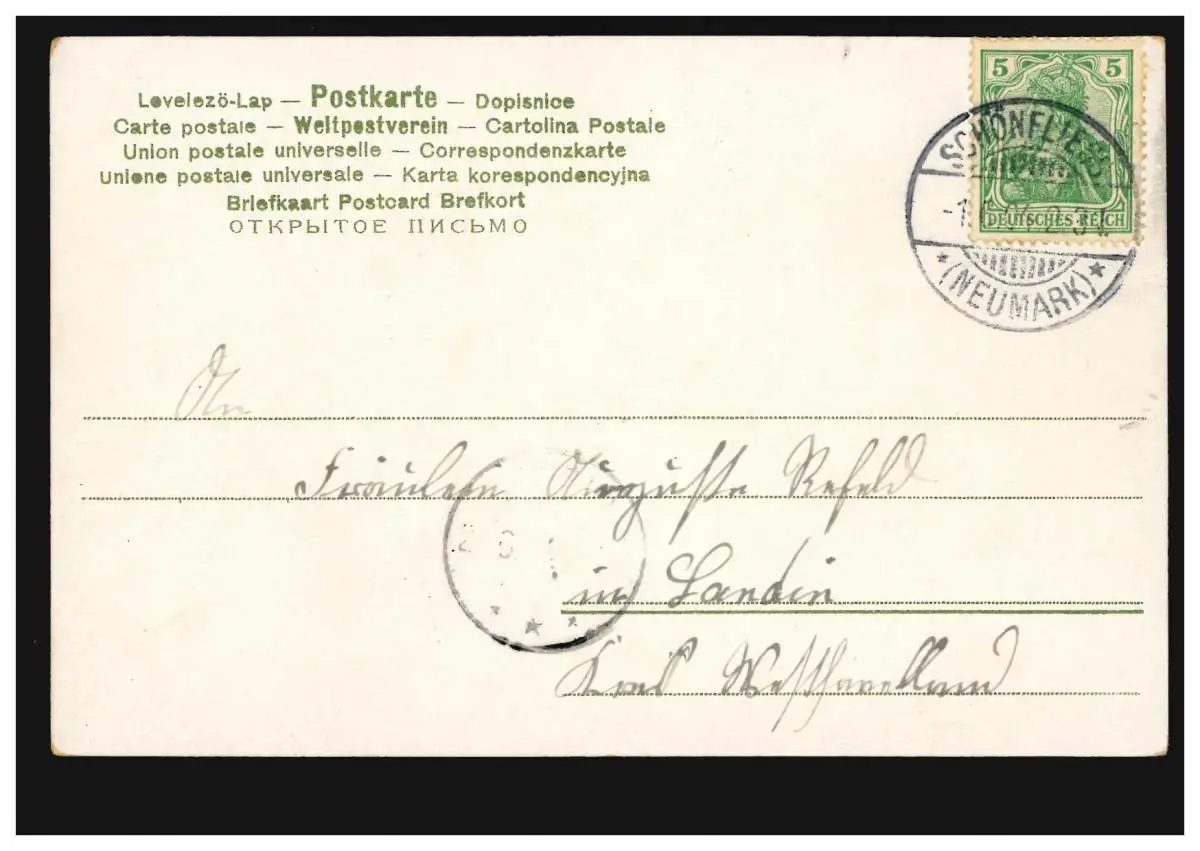 Levelező-Lap — Postkarte — Dopisnice
Carte postale — Weltpostverein — Cartolina Postale
Union postale universelle — Correspondenzkarte
Unione postale universale — Karta korespondencyjna
Briefkaart Postcard Brefkort
ОТКРЫТОЕ ПИСЬМО
5 5
DEUTSCHES REICH
SCHÖNFLIESS
(NEUMARK)
An
Fräulein Auguste Refeld
in Landin
Kreis Westhavelland